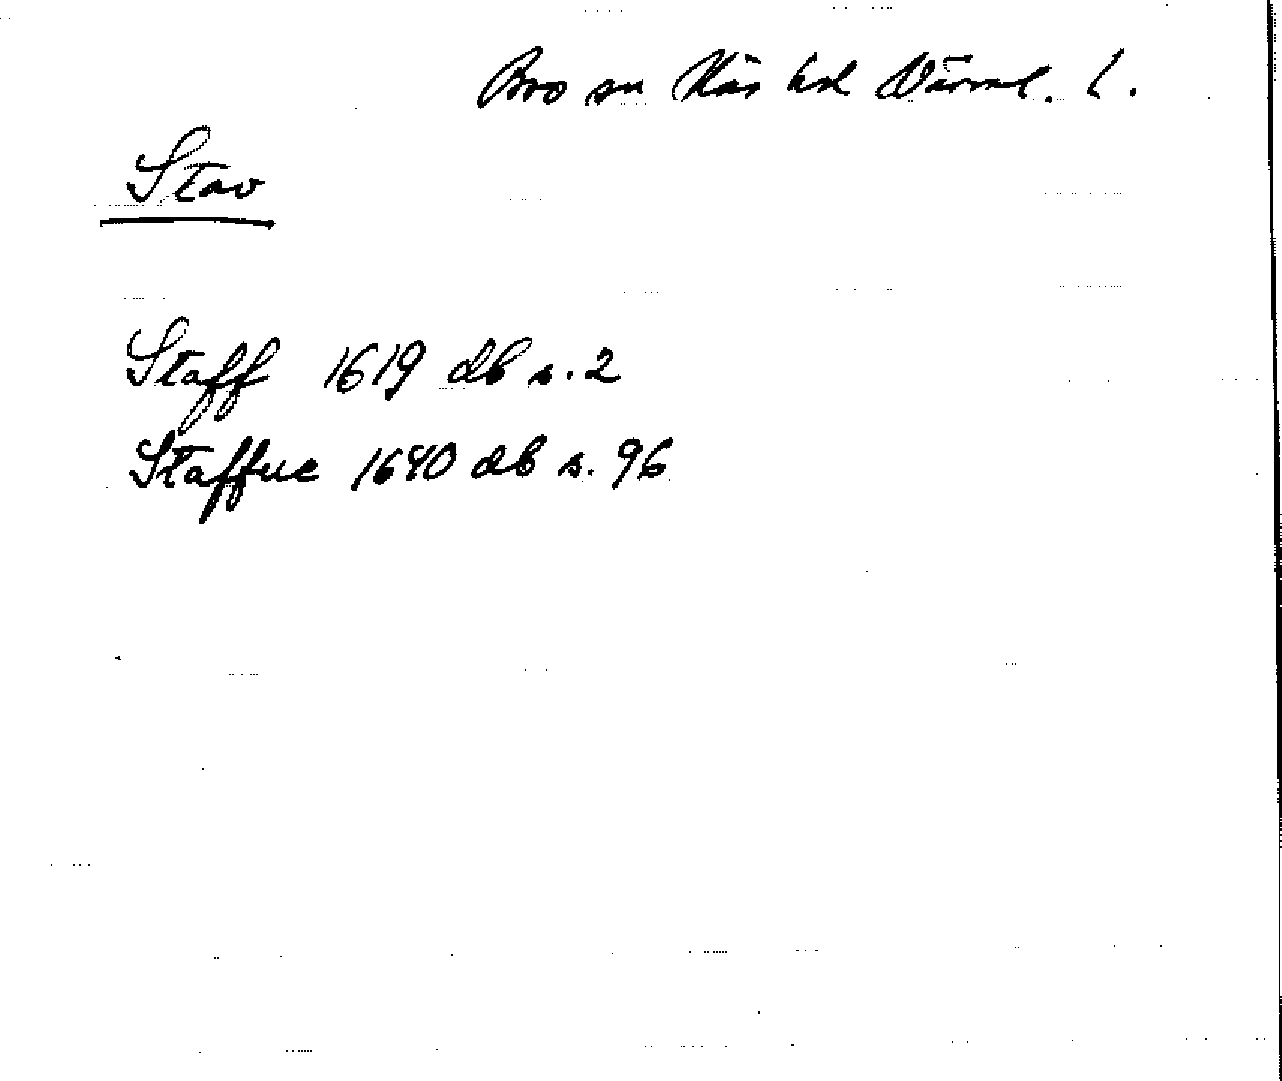 Bro sn Näs hd Värml. l.
Stav
Staff 1619 db s. 2
Staffue 1640 db s. 96